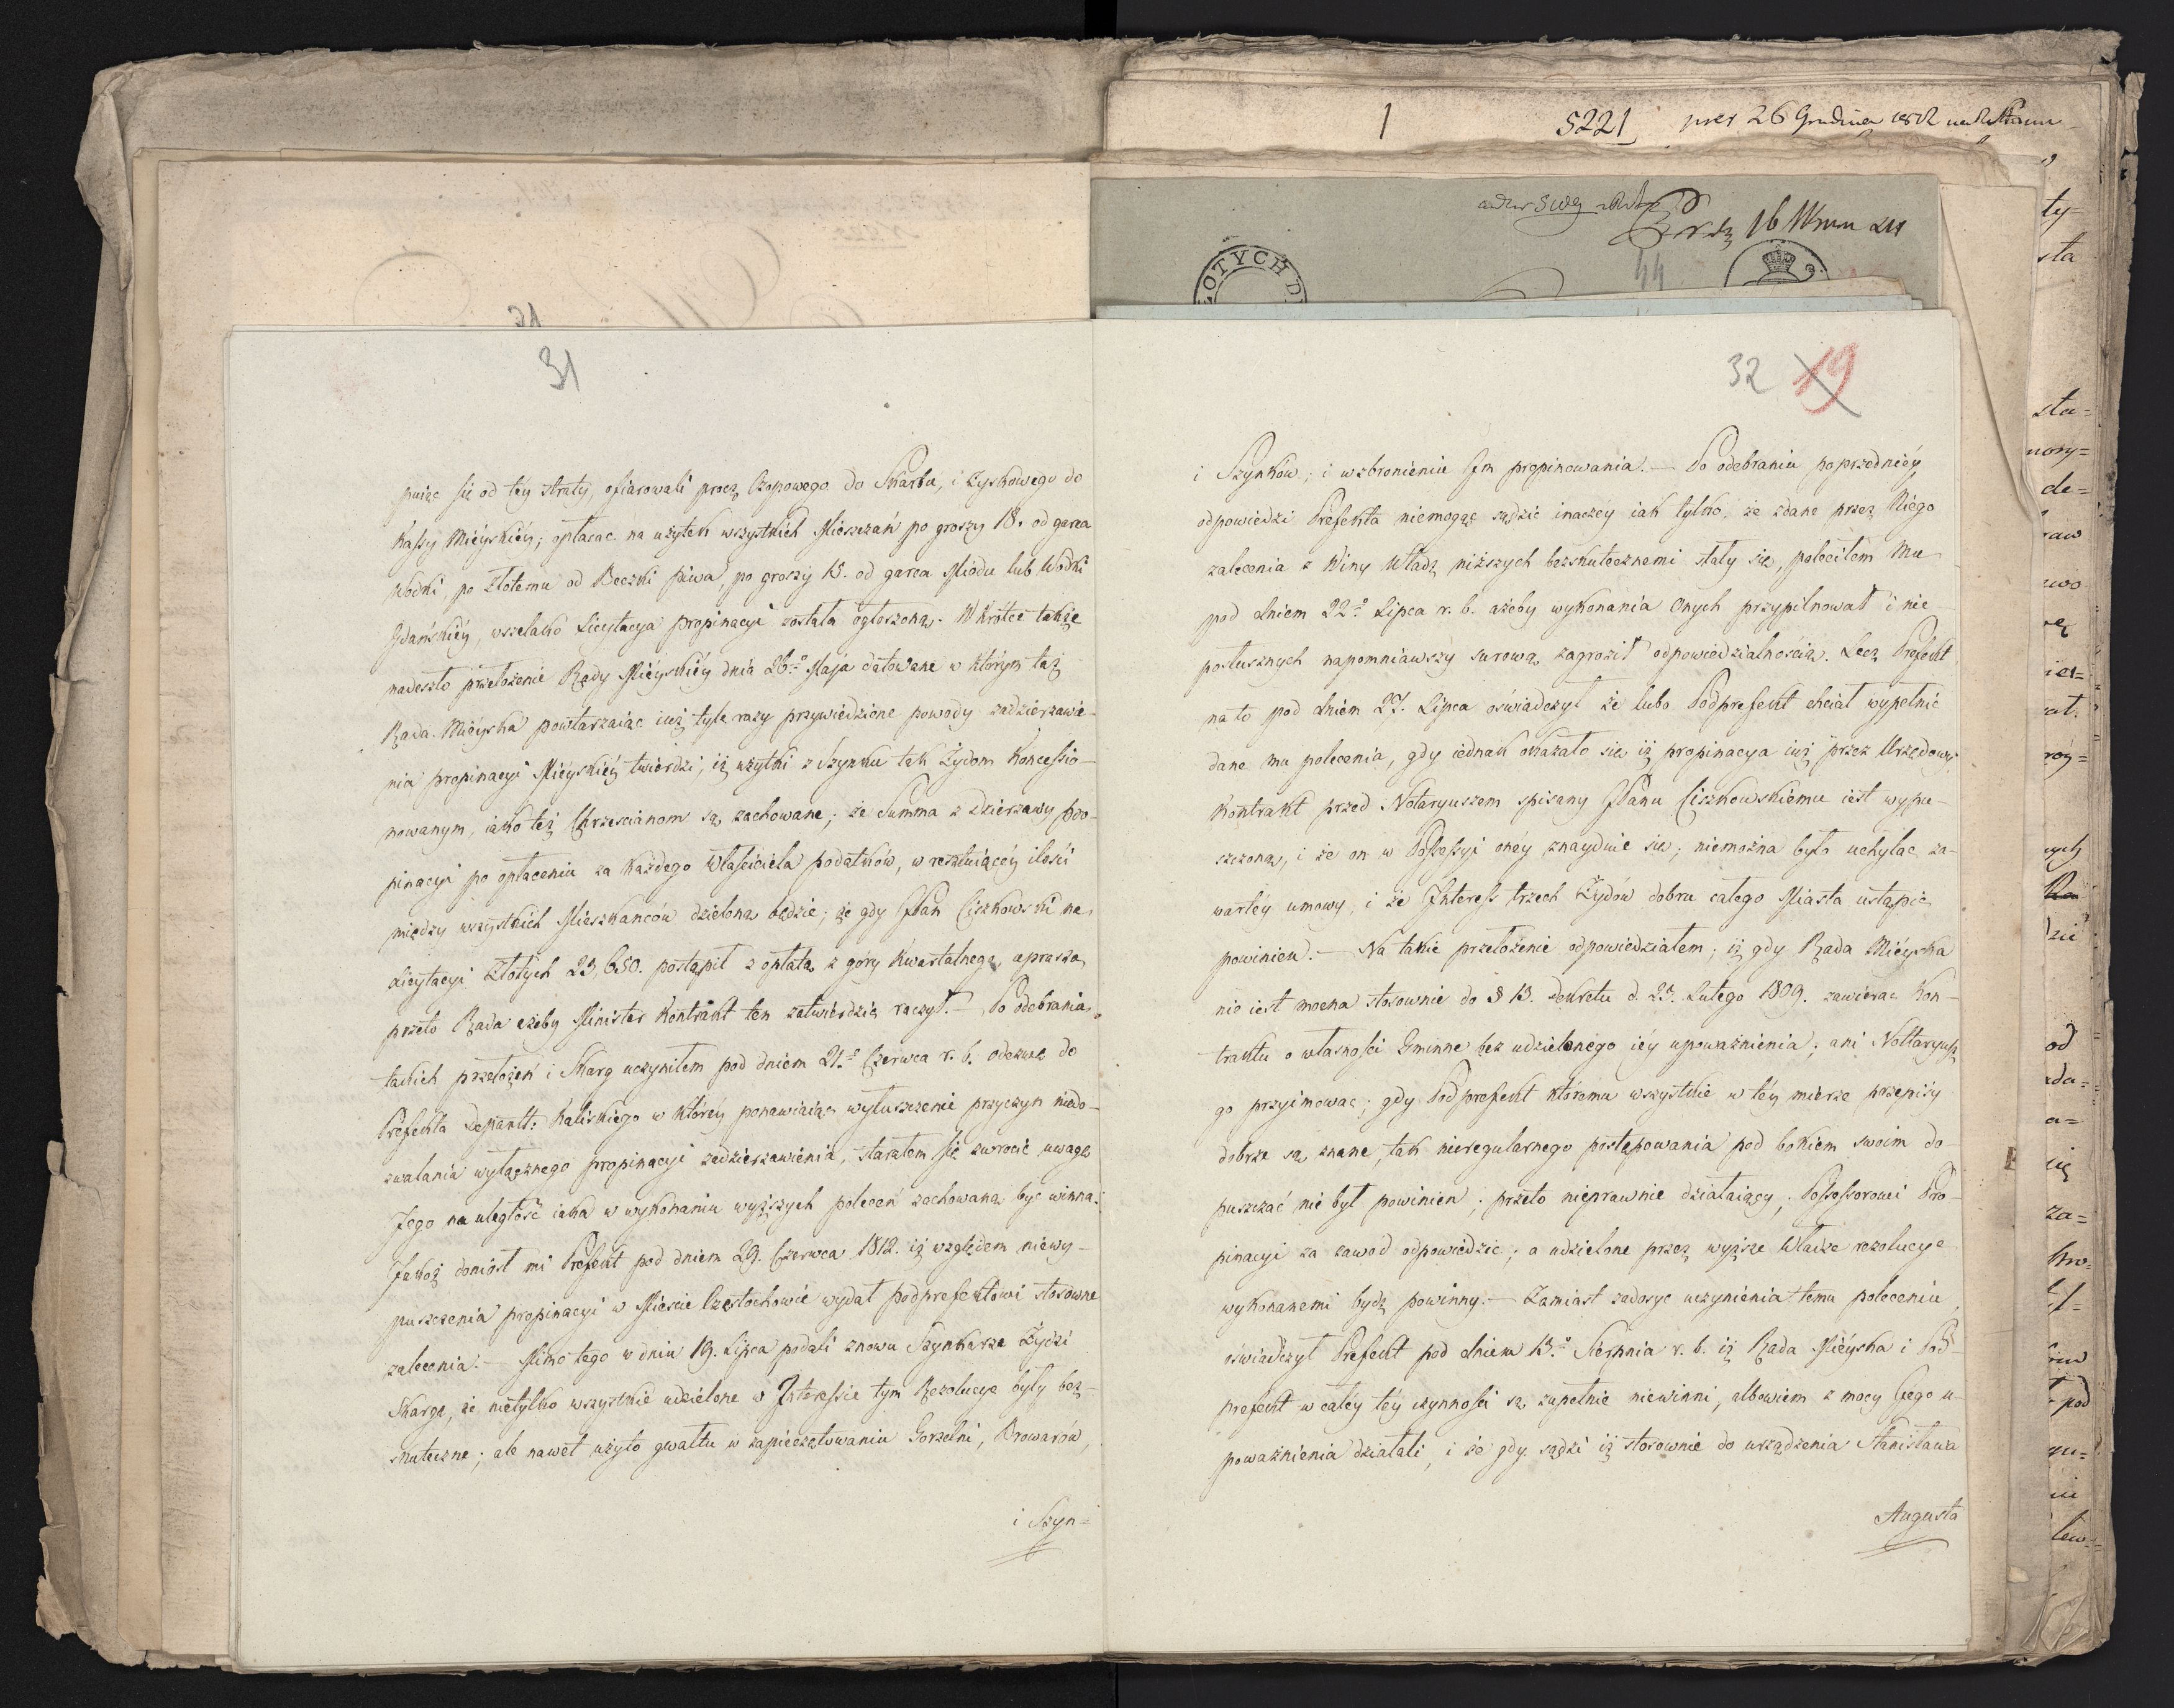 1
5221
pres 26 Grudnia 1812
16
44
OTYCH D
31
puiąc się od téy straty, ofiarowali procz Czopowego do Skarbu, i Zyskowego do
Kassy Miéyskiéy; opłacac na użytek wszystkich Mieszczan po groszy 18. od garca
Wodki, po Złotemu od Beczki piwa, po groszy 15. od garca Miodu lub Wodki
Gdańskiéy, wszelako Licytacya propinacyi została ogłoszoną. Wkrótce także
nadeszło przełożenie Rady Miéyskiéy dnia 26.º Maja datowane w którym taż
Rada Miéyska powtarzaiąc iuż tyle razy przywiedzione powody zadzierzawie-
nia propinacyi Miéyskiéy twierdzi, iż użytki z Szynku tak Żydom Koncessio-
nowanym, iako też Chrzescianom są zachowane; że Summa z Dzierzawy pro-
pinacyi po opłaceniu za każdego Właściciela podatków, w resztuiącéy ilości
między wszystkich Mieszkańców dzielona będzie; że gdy JPan Ciszkowski na
Licytacyi Złotych 23,650. postąpił z opłatą z góry Kwartalnego, uprasza
przeto Rada ażeby Minister Kontrakt ten zatwierdzić raczył. — Po odebraniu
takich przełożeń i Skarg uczyniłem pod dniem 21.º Czerwca r. b. odezwę do
Prefekta Depart: Kaliskiego w któréy ponawiaiąc wyłuszczenie przyczyn niedo-
zwalania wyłącznego propinacyi zadzierzawienia, starałem się zwrocić uwagę
Jego na uległość iaka w wykonaniu wyższych poleceń zachowana być winna.
Jakoż doniósł mi Prefekt pod dniem 29. Czerwca 1812. iż względem niewy-
puszczenia propinacyi w Mieście Częstochowie wydał podprefektowi stosowne
zalecenia. — Mimo tego w dniu 19. Lipca podali znowu Szynkarze Żydzi
Skargę, że nietylko wszystkie udzielone w Interessie tym Rezolucye były bez-
skuteczne; ale nawet użyto gwałtu w zapieczętowaniu Gorzelni, Browarów,
i Szyn=
32 19
i Szynków; i wzbronieniu Im propinowania. — Po odebraniu poprzedniéy
odpowiedzi Prefekta niemogąc sądzić inaczéy iak tylko, że zdane przez Niego
zalecenia z Winy Władz niższych bezskutecznemi stały się, poleciłem Mu
pod dniem 22.º Lipca r. b. ażeby wykonania Onych przypilnował i nie
posłusznych napomniawszy surową zagroził odpowiedzialnością. Lecz Prefekt
na to pod dniem 27. Lipca oświadczył że lubo Podprefekt chciał wypełnić
dane mu polecenia, gdy iednak okazało się iż propinacya iuż przez Urzędowy
Kontrakt przed Notaryuszem spisany JPanu Ciszkowskiemu iest wypu-
szczoną, i że on w Possessyi onéy znayduie się; niemożna było uchylac za-
wartéy umowy, i że Interess trzech Żydów dobru całego Miasta ustąpić
powinien. — Na takie przełożenie odpowiedziałem; iż gdy Rada Miéyska
nie iest mocna stosownie do § 13. Dekretu d. 23. Lutego 1809. zawierac Kon-
traktu o własności Gminne bez udzielonego iéy upoważnienia; ani Nottaryusz
go przyimowac; gdy Podprefekt któremu wszystkie w téy mierze przepisy
dobrze są znane, tak nieregularnego postępowania pod bokiem swoim do-
puszczać nie był powinien; przeto nieprawnie działaiący, Possessorowi Pro-
pinacyi za zawod odpowiedzić; a udzielone przez wyższe Władze rezolucye
wykonanemi bydz powinny. — Zamiast zadosyc uczynienia temu poleceniu
oświadczył Prefekt pod dniem 13.º Sierpnia r. b. iż Rada Miéyska i Pod-
prefekt w całéy téy czynności są zupełnie niewinni, albowiem z mocy Jego u-
poważnienia działali, i że gdy sądzi iż stosownie do urządzenia Stanisława
Augusta